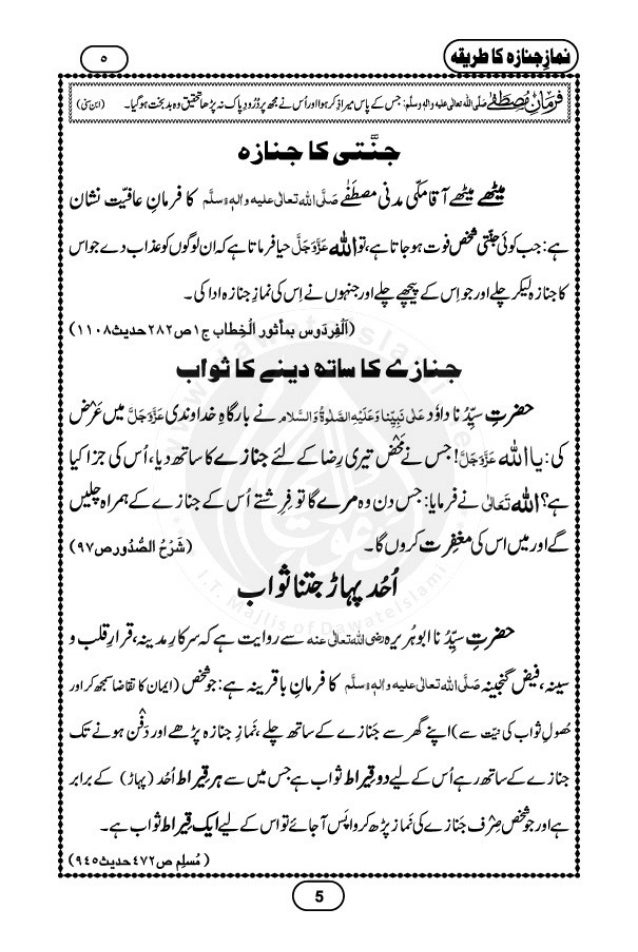 نمازِ جنازہ کا طریقہ
٥
فرمانِ مُصطَفٰے صَلَّی اللہ تعالٰی علیہ والہٖ وسلَّم: جس کے پاس میرا ذِکر ہوا اور اُس نے مجھ پر دُرُودِ پاک نہ پڑھا تحقیق وہ بد بخت ہوگیا۔ (ابن سنی)
جنَّتی کا جنازہ
میٹھے میٹھے آقا مکّی مدنی مصطَفٰے صَلَّی اللہ تعالٰی علیہ والہٖ وسلَّم کا فرمانِ عافیّت نشان
ہے: جب کوئی جنّتی شخص فوت ہو جاتا ہے، تو اللہ عَزَّوَجَلَّ حیا فرماتا ہے کہ ان لوگوں کو عذاب دے جو اس
کا جنازہ لیکر چلے اور جو اِس کے پیچھے چلے اور جنہوں نے اِس کی نمازِ جنازہ ادا کی۔
(اَلْفِردَوس بمأثور الْخِطاب ج١ص٢٨٢حدیث١١٠٨)
جنازے کا ساتھ دینے کا ثواب
حضرتِ سیِّدُنا داوٗد عَلٰی نَبِیِّنا وَعَلَیْہِ الصَّلٰوۃُ وَالسَّلام نے بارگاہِ خداوندی عَزَّوَجَلَّ میں عَرض
کی: یا اللہ عَزَّوَجَلَّ! جس نے مَحض تیری رِضا کے لئے جنازے کا ساتھ دیا، اُس کی جزا کیا
ہے؟ اللہ تَعَالٰی نے فرمایا: جس دن وہ مرے گا تو فِرِشتے اُس کے جنازے کے ہمراہ چلیں
گے اور میں اس کی مغفِرت کروں گا۔ (شَرْحُ الصُّدُور ص٩٧)
اُحُد پہاڑ جتنا ثواب
حضرتِ سیِّدُنا ابو ہُریرہ رضی اللہ تعالٰی عنہ سے روایت ہے کہ سرکارِ مدینہ، قرارِ قلب و
سینہ، فیض گنجینہ صَلَّی اللہ تعالٰی علیہ والہٖ وسلَّم کا فرمانِ باقرینہ ہے: جو شخص (ایمان کا تقاضا سمجھ کر اور
حُصولِ ثواب کی نیّت سے) اپنے گھر سے جَنازے کے ساتھ چلے، نَمازِ جنازہ پڑھے اور دَفْن ہونے تک
جنازے کے ساتھ رہے اُس کے لیے دو قیراط ثواب ہے جس میں سے ہر قیراط اُحُد (پہاڑ) کے برابر
ہے اور جو شخص صِرْف جَنازے کی نَماز پڑھ کر واپَس آ جائے تو اس کے لیے ایک قیراط ثواب ہے۔
(مُسلِم ص٤٧٢حدیث٩٤٥)
www.dawateislami.net
I.T. Majlis of DawateIslami
5